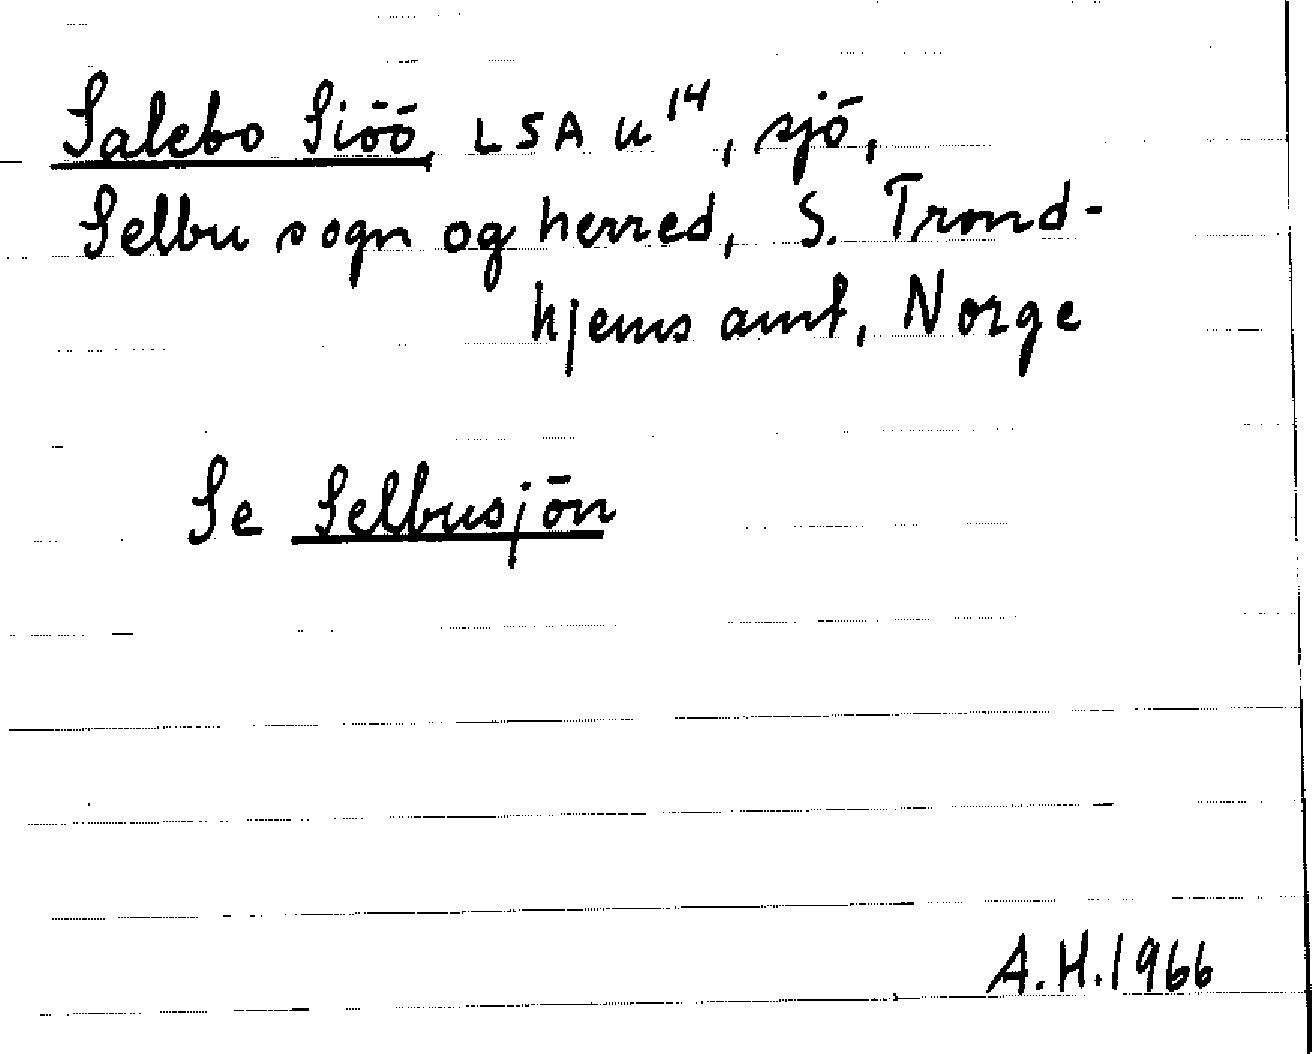 Salebo Siöö, LSA U¹⁴, sjö,
Selbu sogn og herred, S. Trond-
hjems amt, Norge
Se Selbusjön
A.H. 1966